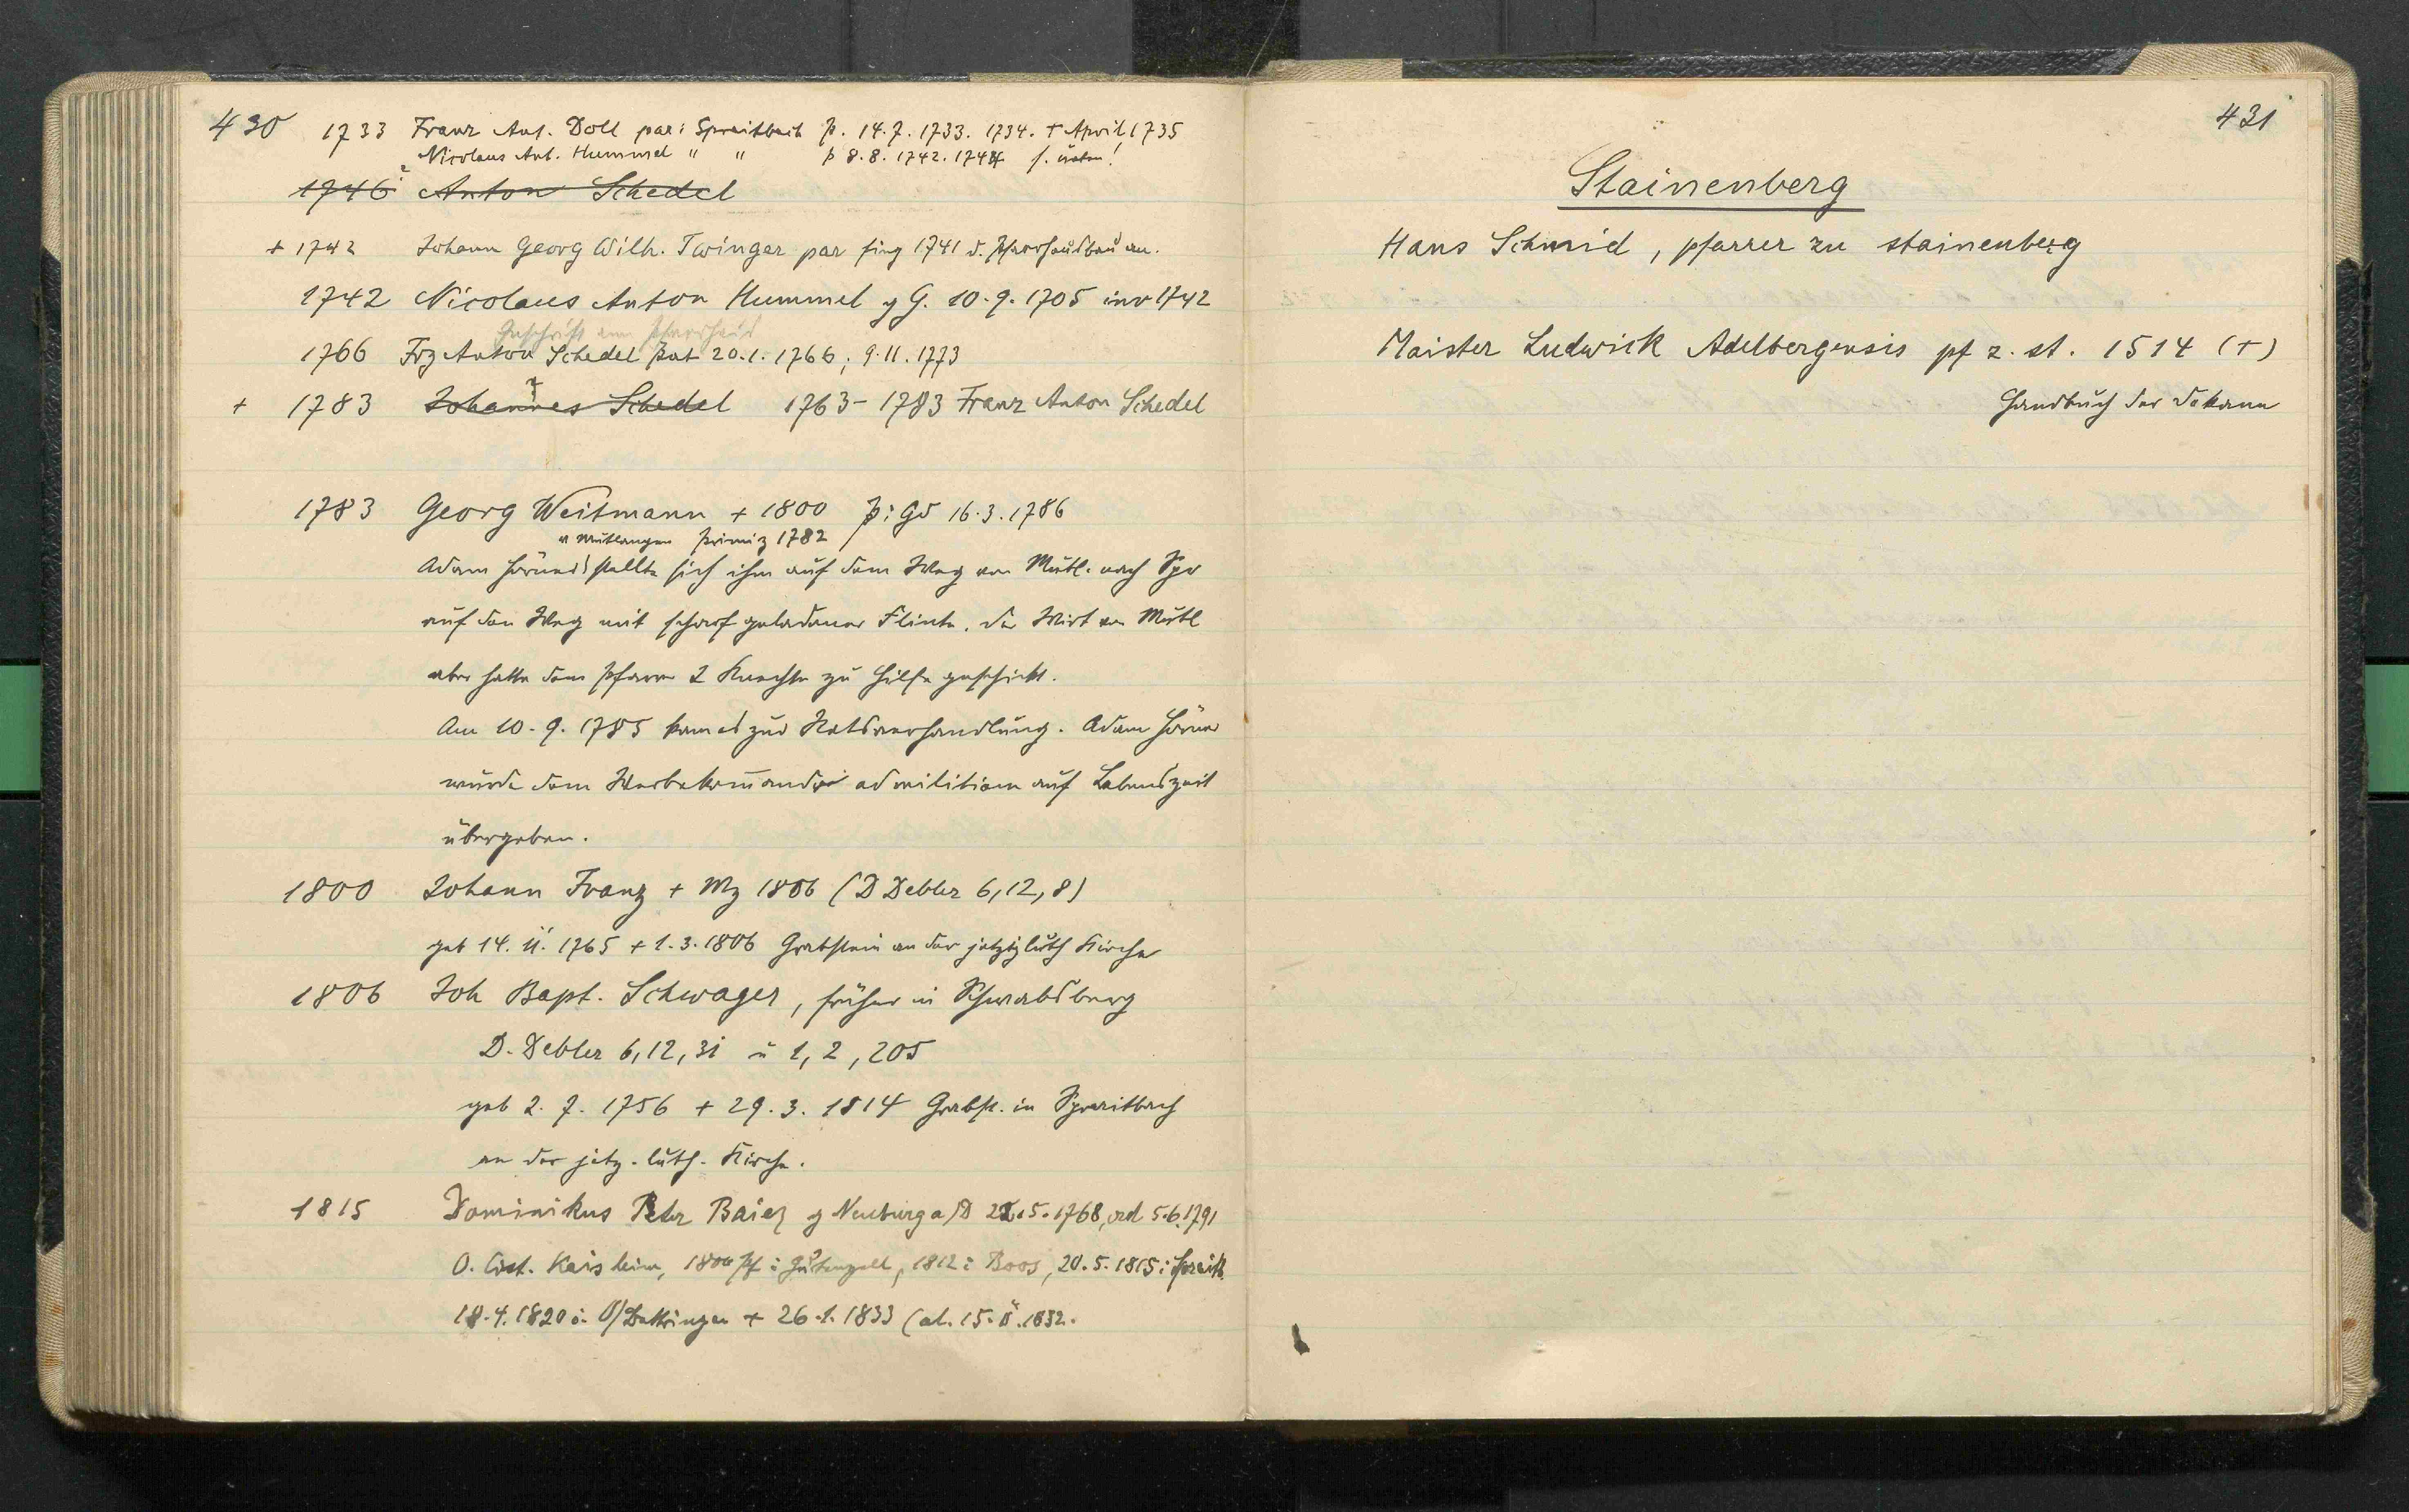 430
1733 Franz Ant. Doll par: Spraitbach p. 14.7.1733. 1734. + April 1735
Nicolaus Ant. Hummel " " p 8.8.1742. 1744 s. unten!
1746 Anton Schedel
+ 1742 Johann Georg Wilh. Twinger par fing 1741 d. Pfarrhausbau an.
1742 Nicolaus Anton Hummel g G. 10.9.1705 inv 1742
Inschrift am Pfarrhaus
1766 Frz Anton Schedel pat 20.1.1766; 9.11.1773
+ 1783 Johannes Schedel 1763-1783 Franz Anton Schedel
1783 Georg Weitmann + 1800 p: Gd 16.3.1786
v Mutlangen Primiz 1782
Adam stellte sich ihm auf dem Weg von Mutl. nach Spr
auf den Weg mit scharf geladener Flinte. Der Wirt von Mutl
aber hatte dem Pfarrer 2 Knechte zu Hilfe geschickt.
Am 10.9.1785 kam es zur Ratsverhandlung. Adam
wurde dem Werbekom̄ando ad militiam auf Lebenszeit
übergeben.
1800 Johann Franz + Mz 1806 (D Debler 6,12,8)
geb 14.11.1765 + 1.3.1806 Grabstein an der jetzig luth Kirche
1806 Joh Bapt. Schwager, früher in Schwabsberg
D. Debler 6,12,31 u 1,2,205
geb 2.7.1756 + 29.3.1814 Grabst. in Spraitbach
an der jetz. luth. Kirche.
1815 Dominikus Peter Baier g Neuburg a/D 22.5.1768, ord 5.6.1791
O. Cist. Kaisheim, 1806 Pf i Gutenzell, 1812 i Boos, 20.5.1815 i Spraitb.
18.4.1820 i. O/Dettingen + 26.1.1833 (al. 15.11.1832.
431
Stainenberg
Hans Schmid, pfarrer zu stainenberg
Maister Ludwick Adelbergensis pf z. st. 1514 (+)
Handbuch der Dekane